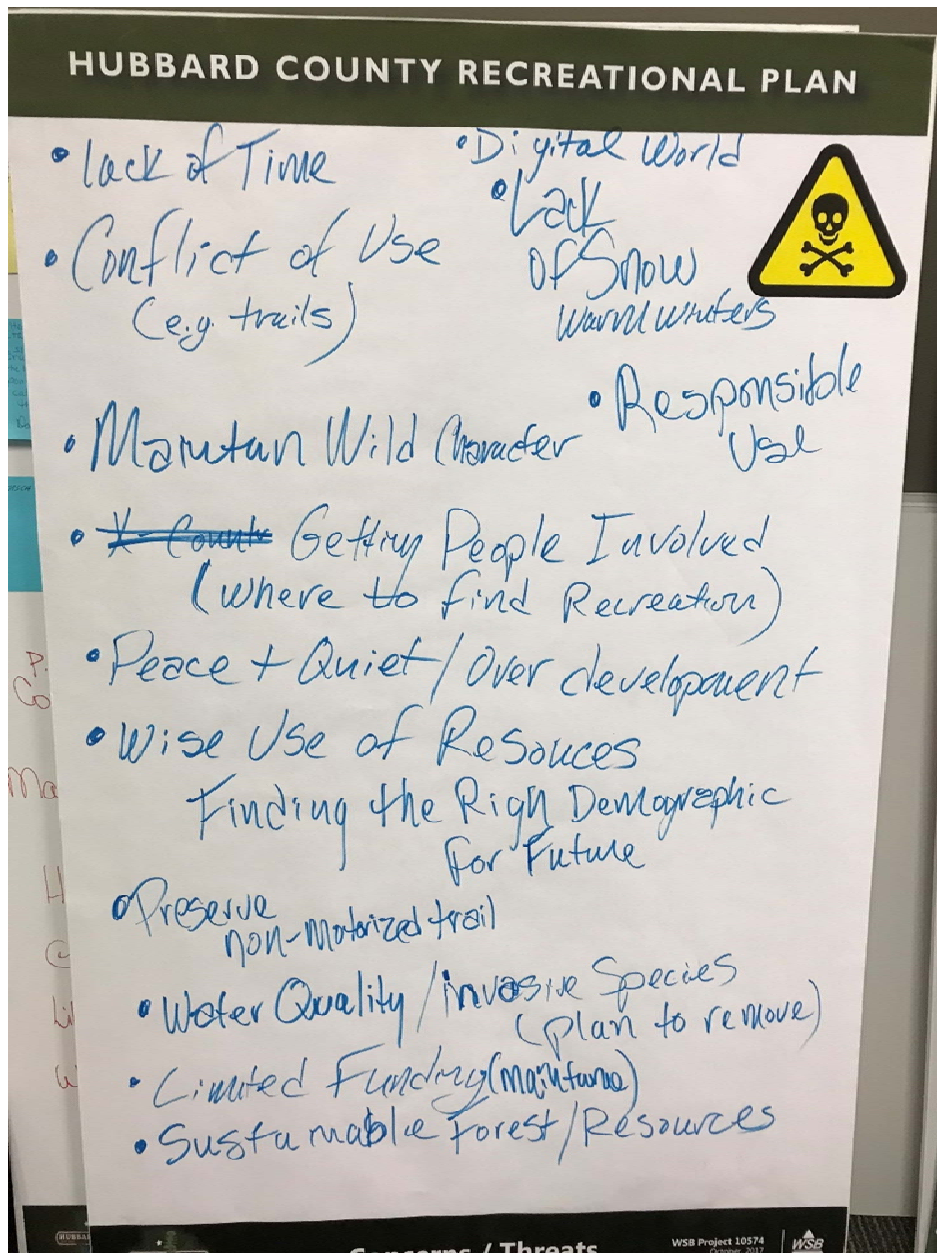 HUBBARD COUNTY RECREATIONAL PLAN
• lack of Time
• Digital World
• Lack
of Snow
warm winters
• Conflict of Use
(e.g. trails)
• Responsible
Use
• Maintain Wild Character
• X-Country Getting People Involved
(where to find Recreation)
• Peace + Quiet / Over development
• Wise Use of Resouces
Finding the Righ Demographic
for Future
• Preserve
non-motorized trail
• Water Quality / invasive Species
(plan to remove)
• Limited Funding (maintance)
• Sustainable Forest / Resources
Concerns / Threats
WSB Project 10574
October 2017
WSB